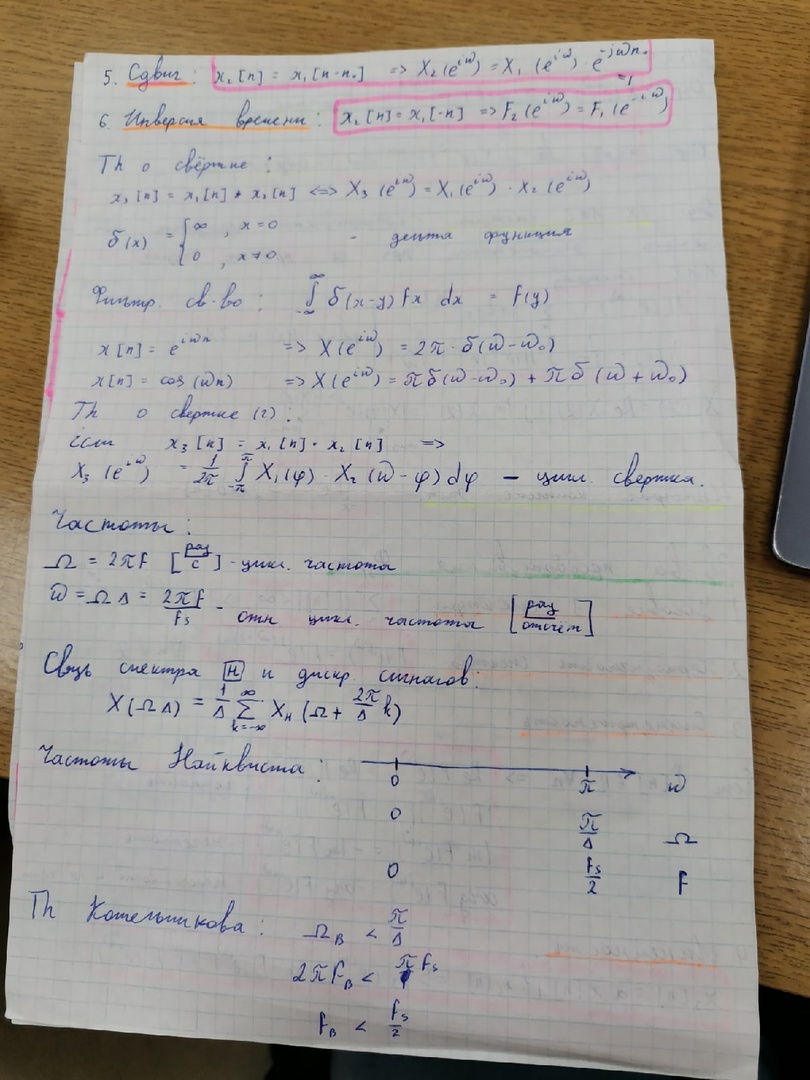 5. Сдвиг: x₂[n] = x₁[n-n₀] => X₂(e^{iω}) = X₁(e^{iω}) e^{-jωn₀}
6. Инверсия времени: x₂[n] = x₁[-n] => F₂(e^{iω}) = F₁(e^{-iω})
Th о свёртке:
x₃[n] = x₁[n] * x₂[n] <=> X₃(e^{iω}) = X₁(e^{iω}) · X₂(e^{iω})
δ(x) = { ∞, x=0
0, x≠0 - дельта функция
Фильтр. св-во: ∫_{-∞}^{∞} δ(x-y) fx dx = f(y)
x[n] = e^{iωn} => X(e^{iω}) = 2π·δ(ω-ω₀)
x[n] = cos(ωn) => X(e^{iω}) = πδ(ω-ω₀) + πδ(ω+ω₀)
Th о свертке (2):
если x₃[n] = x₁[n]·x₂[n] =>
X₃(e^{iω}) = 1/2π ∫_{-π}^{π} X₁(φ)·X₂(ω-φ)dφ - цикл. свертка.
Частоты:
Ω = 2πf [рад/с] - цикл. частота
ω = ΩΔ = 2πf/fs - отн цикл. частоты [рад/отсчёт]
Связь спектра Н и дискр. сигналов:
X(ΩΔ) = 1/Δ ∑_{k=-∞}^{∞} X_н(Ω + 2π/Δ k)
Частоты Найквиста: 0 π ω
0 π/Δ Ω
0 fs/2 f
Th Котельникова: Ω_в < π/Δ
2πf_в < π fs
f_в < fs/2